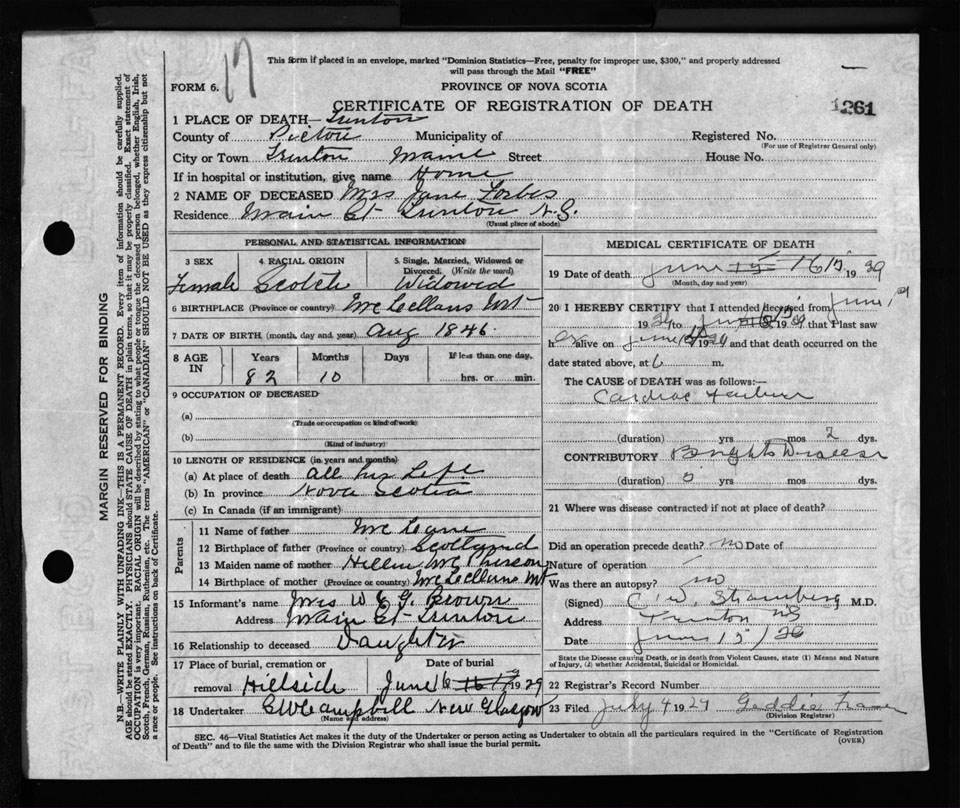 This form if placed in an envelope, marked "Dominion Statistics—Free, penalty for improper use, $300," and properly addressed
will pass through the Mail "FREE"
FORM 6. 17
PROVINCE OF NOVA SCOTIA
CERTIFICATE OF REGISTRATION OF DEATH
1261
1 PLACE OF DEATH— Trenton
County of Pictou Municipality of Registered No.
(For use of Registrar General only)
City or Town Trenton Maine Street House No.
If in hospital or institution, give name Home
2 NAME OF DECEASED Mrs Jane Forbes
Residence Main St Trenton N.S.
(Usual place of abode)
PERSONAL AND STATISTICAL INFORMATION
3 SEX 4 RACIAL ORIGIN 5 Single, Married, Widowed or Divorced. (Write the word)
Female Scotch Widowed
6 BIRTHPLACE (Province or country) McLellans Mt
7 DATE OF BIRTH (month, day and year) Aug 1846
8 AGE IN Years Months Days If less than one day,
82 10 hrs. or min.
9 OCCUPATION OF DECEASED
(a)
(Trade or occupation or kind of work)
(b)
(Kind of industry)
10 LENGTH OF RESIDENCE (in years and months)
(a) At place of death all his Life
(b) In province Nova Scotia
(c) In Canada (if an immigrant)
Parents
11 Name of father McLane
12 Birthplace of father (Province or country)
13 Maiden name of mother McPherson
14 Birthplace of mother (Province or country) McLellans Mt
15 Informant's name Mrs W G Brown
Address Main St Trenton
16 Relationship to deceased Daughter
17 Place of burial, cremation or Date of burial
removal Hillside June 1929
18 Undertaker G W Campbell New Glasgow
(Name and address)
MEDICAL CERTIFICATE OF DEATH
19 Date of death June 15 16 15 1929
(Month, day and year)
20 I HEREBY CERTIFY that I attended deceased from June 1
1929 to 1929 that I last saw
h er alive on June 1929 and that death occurred on the
date stated above, at 6 m.
The CAUSE of DEATH was as follows:—
Cardiac Failure
(duration) yrs mos 2 dys.
CONTRIBUTORY Brights Disease
(duration) 5 yrs. mos. dys.
21 Where was disease contracted if not at place of death?
Did an operation precede death? no Date of
Nature of operation
Was there an autopsy? no
(Signed) M.D.
Address Trenton NS
Date June 15/29
State the Disease causing Death, or in death from Violent Causes, state (1) Means and Nature
of Injury, (2) whether Accidental, Suicidal or Homicidal.
22 Record Number
23 Filed July 4 1929 Geddie Fraser
(Division Registrar)
SEC. 46—Vital Statistics Act makes it the duty of the Undertaker or person acting as Undertaker to obtain all the particulars required in the "Certificate of Registration
of Death" and to file the same with the Division Registrar who shall issue the burial permit. (OVER)
MARGIN RESERVED FOR BINDING
N.B.—WRITE PLAINLY WITH UNFADING INK—THIS IS A PERMANENT RECORD. Every item of information should be carefully supplied.
AGE should be stated EXACTLY. PHYSICIANS should STATE CAUSE OF DEATH in plain terms, so that it may be properly classified. Exact statement of
OCCUPATION is very important. RACIAL ORIGIN will be described by stating to what people or tongue the deceased person belonged, whether English, Irish,
Scotch, French, German, Russian, Ruthenian, etc. The terms "AMERICAN" or "CANADIAN" SHOULD NOT BE USED as they express citizenship but not
a race or people. See instructions on back of Certificate.